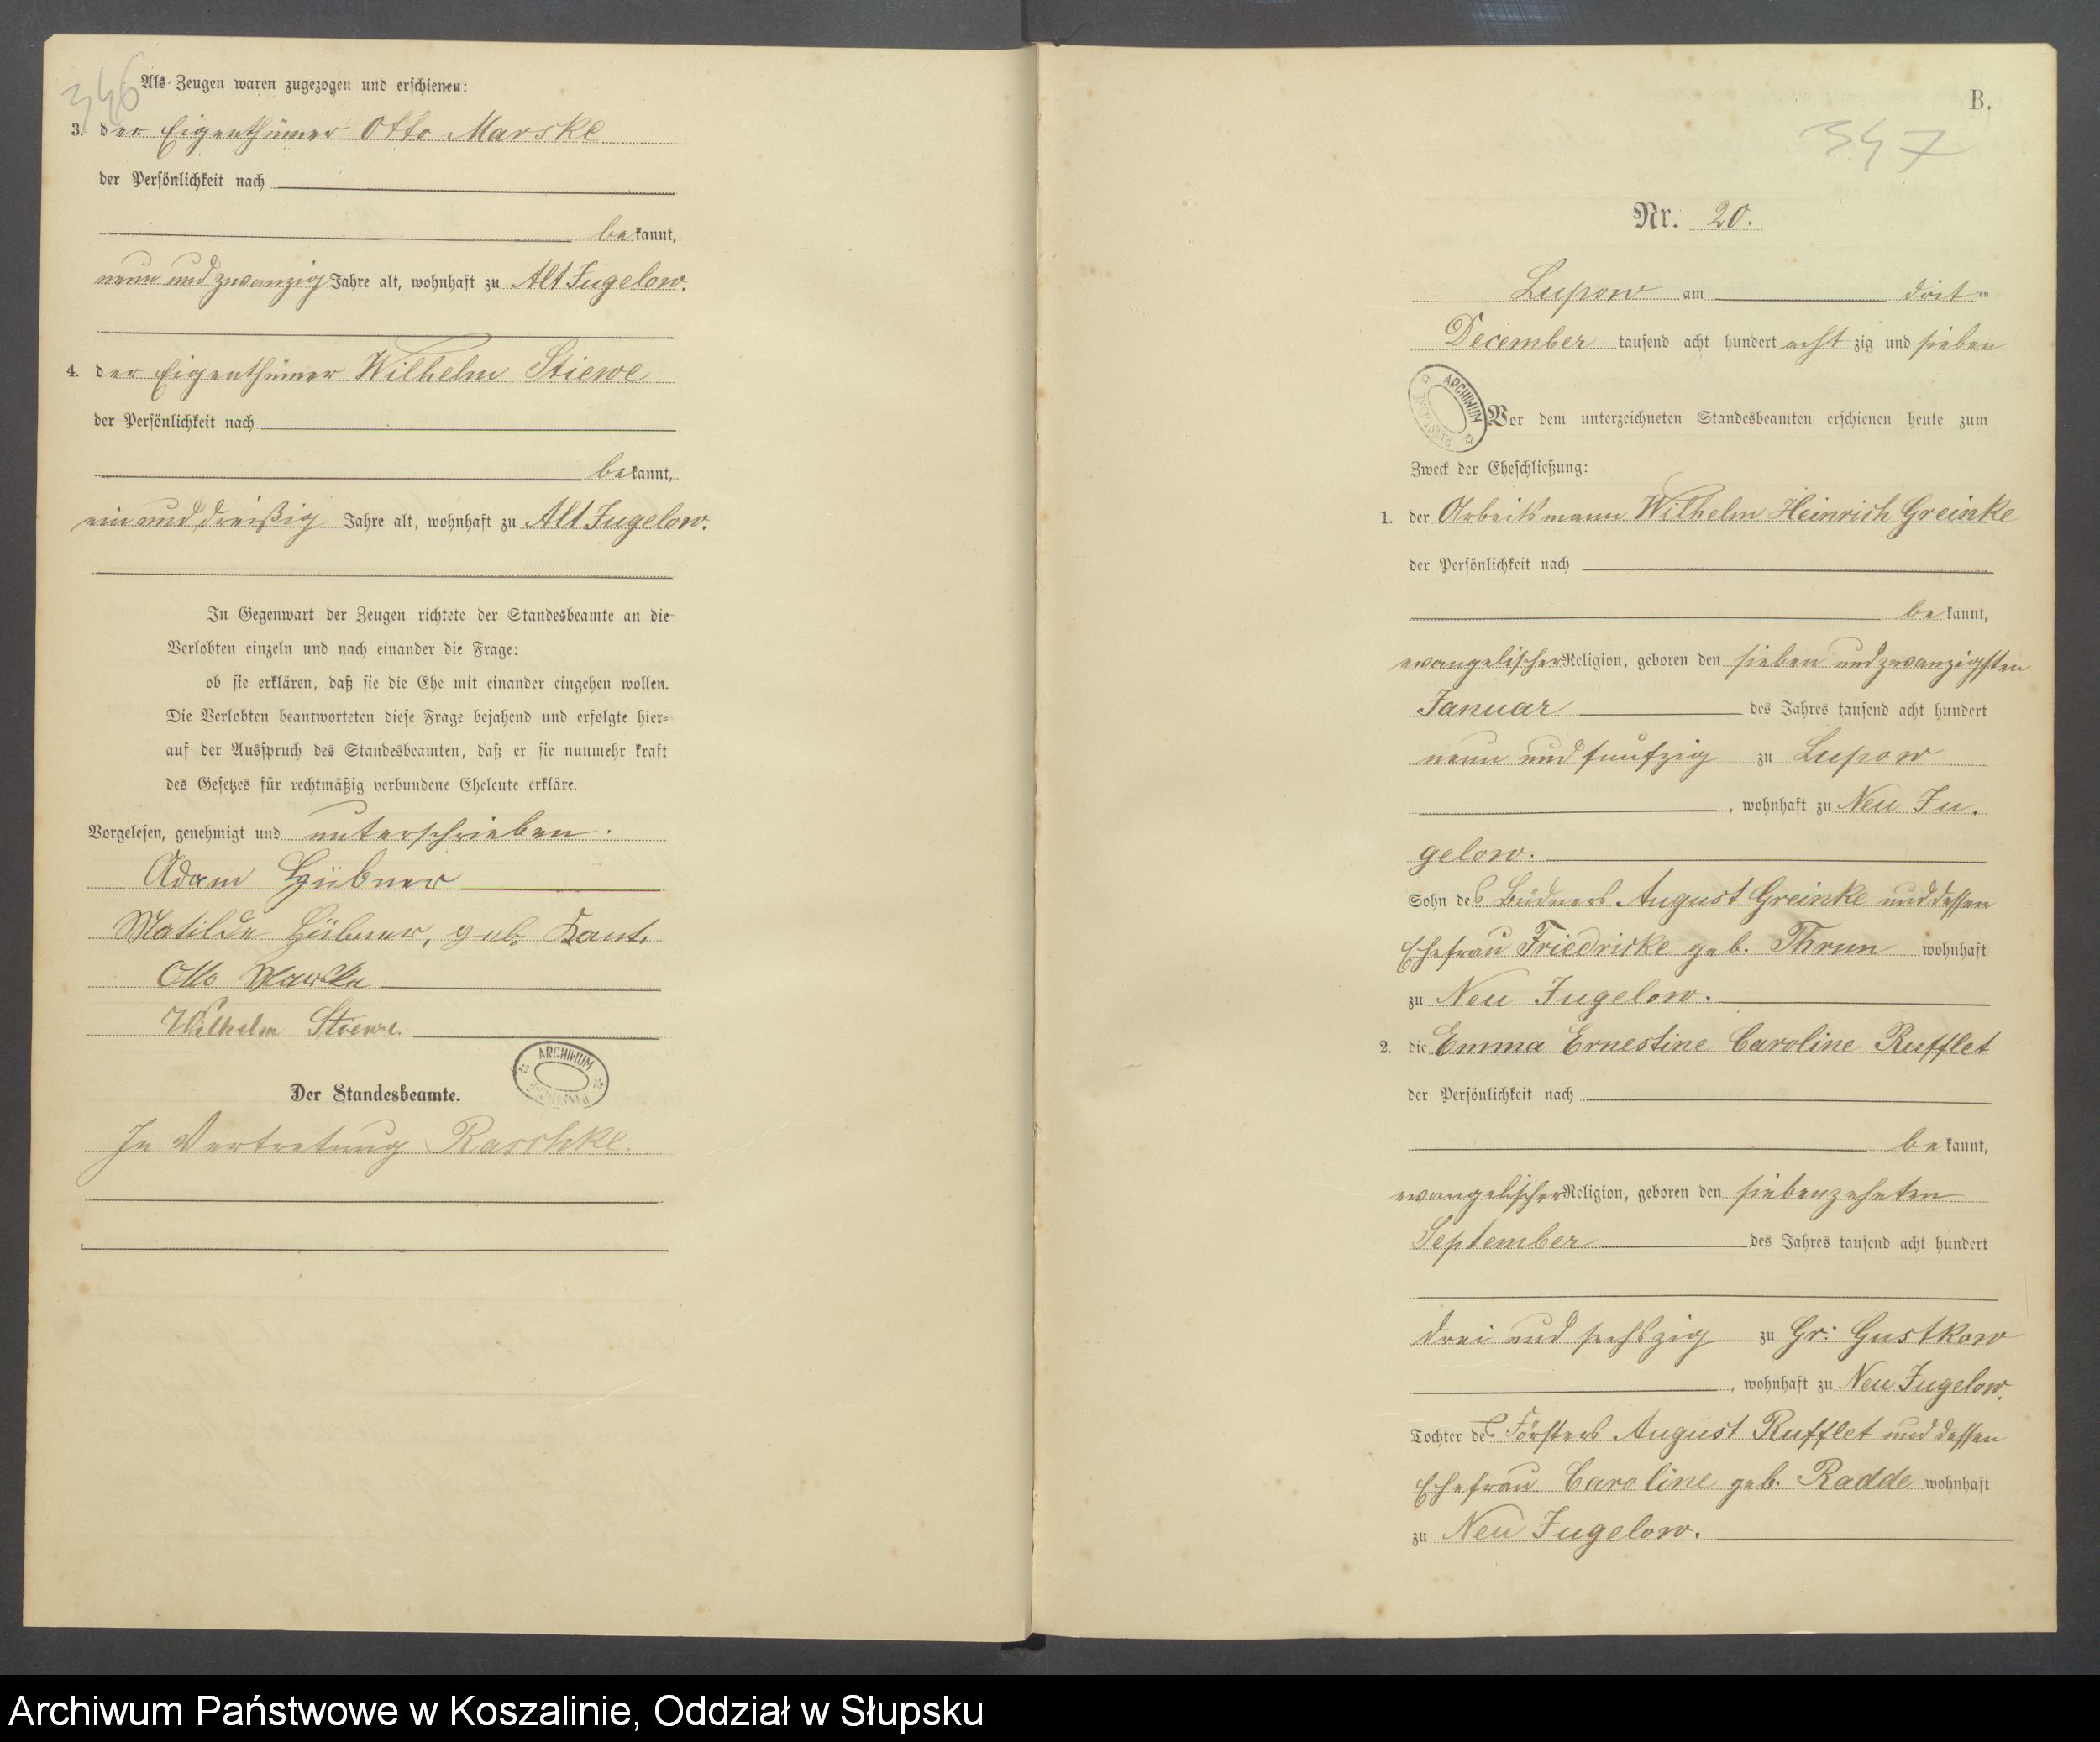 346
Als Zeugen waren zugezogen und erschienen:
3. der Eigenthümer Otto Marske
der Persönlichkeit nach
bekannt,
neun und zwanzig Jahre alt, wohnhaft zu Alt Jugelow.
4. der Eigenthümer Wilhelm Stiewe
der Persönlichkeit nach
bekannt,
ein und dreißig Jahre alt, wohnhaft zu Alt Jugelow.
In Gegenwart der Zeugen richtete der Standesbeamte an die
Verlobten einzeln und nach einander die Frage:
ob sie erklären, daß sie die Ehe mit einander eingehen wollen.
Die Verlobten beantworteten diese Frage bejahend und erfolgte hier-
auf der Ausspruch des Standesbeamten, daß er sie nunmehr kraft
des Gesetzes für rechtmäßig verbundene Eheleute erkläre.
Vorgelesen, genehmigt und unterschrieben.
Adam Hübner
Matilde Hübner, geb. Kant.
Otto Marske
Wilhelm Stiewe
ARCHIWUM
Der Standesbeamte.
In Vertretung Raschke.
B.
347
Nr. 20.
Lupow am dritten
December tausend acht hundert achtzig und sieben
ARCHIWUM
Vor dem unterzeichneten Standesbeamten erschienen heute zum
Zweck der Eheschließung:
1. der Arbeitsmann Wilhelm Heinrich Greinke
der Persönlichkeit nach
bekannt,
evangelischer Religion, geboren den sieben und zwanzigsten
Januar des Jahres tausend acht hundert
neun und funfzig zu Lupow
, wohnhaft zu Neu Ju.
gelow.
Sohn des Büdners August Greinke und dessen
Ehefrau Friedricke geb. Thrun wohnhaft
zu Neu Jugelow.
2. die Emma Ernestine Caroline Rufflet
der Persönlichkeit nach
bekannt,
evangelischer Religion, geboren den siebenzehnten
September des Jahres tausend acht hundert
drei und sechszig zu Gr: Gustkow
, wohnhaft zu Neu Jugelow.
Tochter des Försters August Rufflet und dessen
Ehefrau Caroline geb. Radde wohnhaft
zu Neu Jugelow.
Archiwum Państwowe w Koszalinie, Oddział w Słupsku